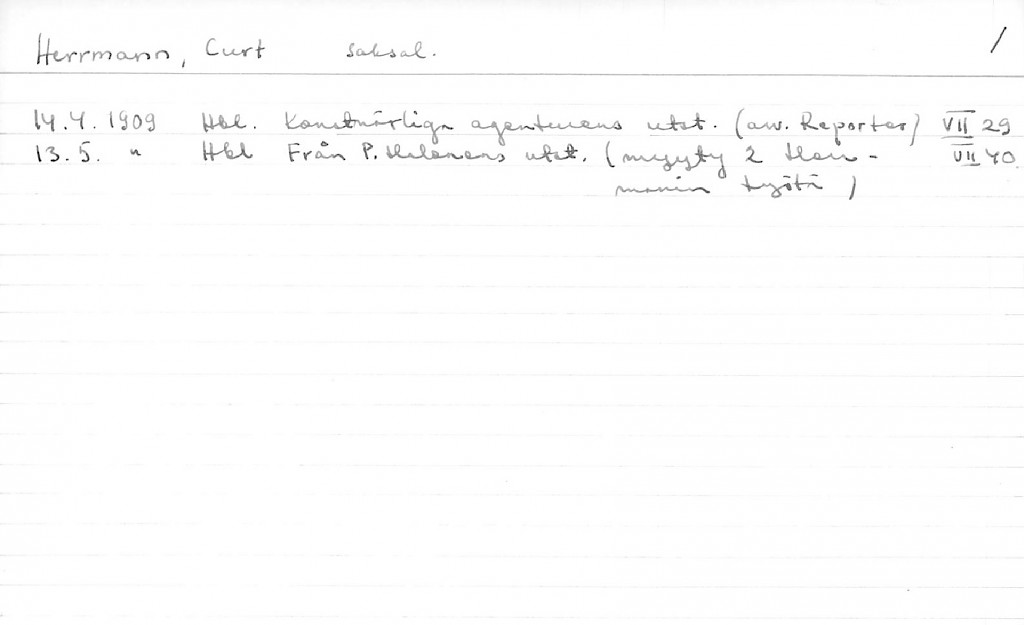 Herrmann, Curt saksal. /
14.4. 1909 Hbl. Konstnärliga agenturens utst. (anv. Reporter) VII 29
13.5. " Hbl Från P. Helanens utst. (myyty 2 Herr-
mannin työtä) VII 40.